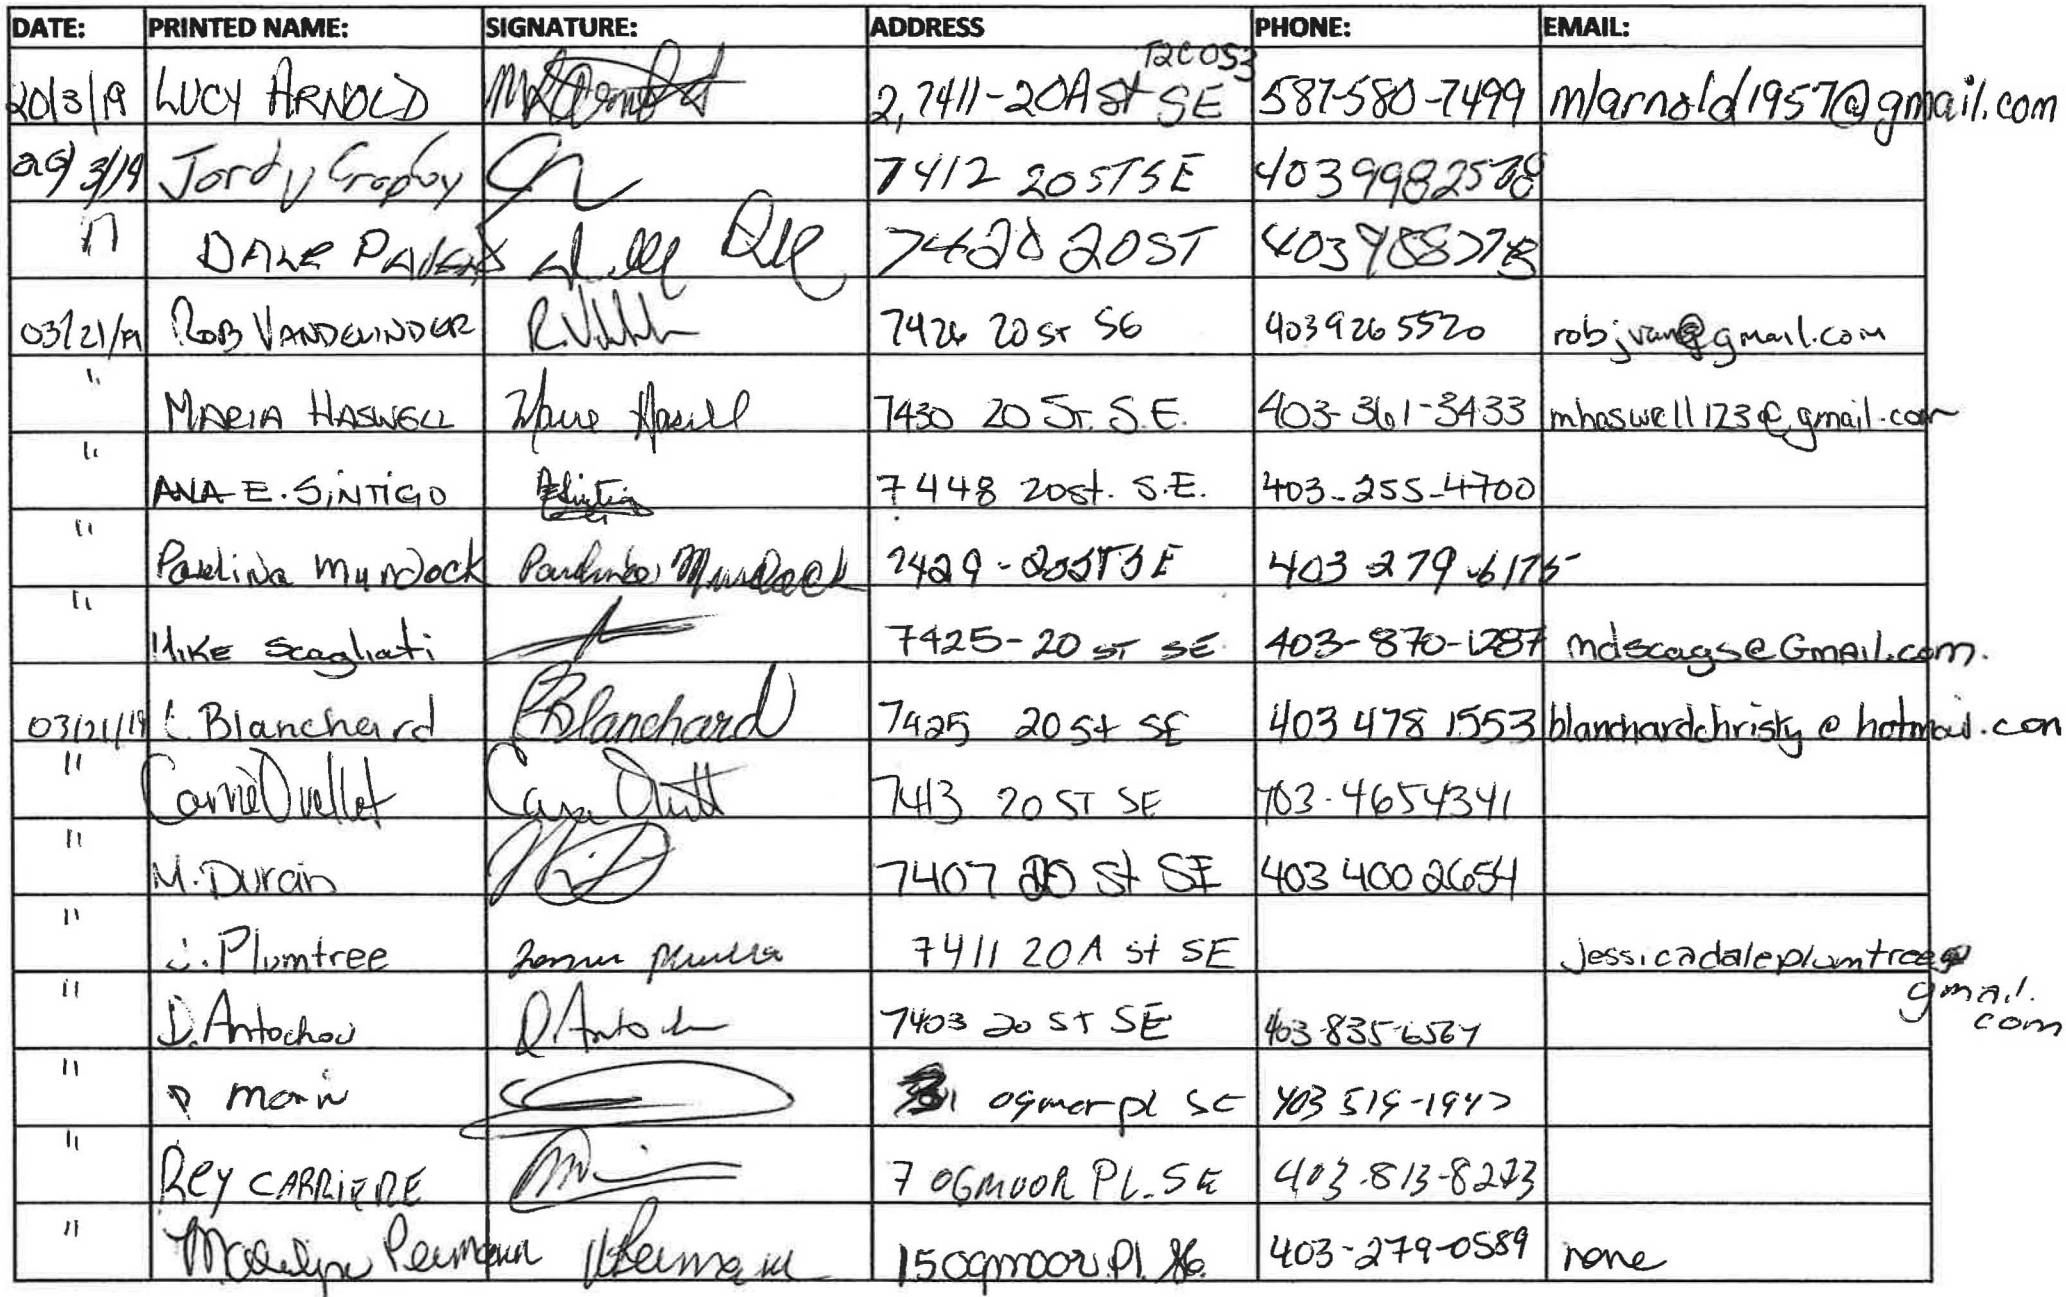 DATE: PRINTED NAME: SIGNATURE: ADDRESS PHONE: EMAIL:
T2C 0S3
20/3/19 LUCY ARNOLD 2, 7411-20A St SE 587-580-7499 mlarnold1957@gmail.com
3/19 Jordy 7412 20 ST SE 403 998
" DALE 7420 20 ST 403
03/21/19 ROB VANDELINDER 7426 20 ST SE 403 926 5520 robjvan@gmail.com
" MARIA HASWELL 7430 20 ST. S.E. 403-361-3433 mhaswell123@gmail.com
" ANA E. SINTIGO 7448 20st. S.E. 403-255-4700
" Paulina Murdock Murdock 7429 - 20 ST SE 403 279-6175
" MIKE Scagliati 7425-20 ST SE 403-870-1287 mdscags@Gmail.com.
03/21/19 C Blanchard Blanchard 7425 20 St SE 403 478 1553 blanchardchristy@hotmail.com
" Ouellet 7413 20 ST SE 403-4654341
" M. Duran 7407 20 St SE 403 400 2654
" J. Plumtree 7411 20A St SE jessicadaleplumtree@
gmail.
com
" D. Antochow D Anto 7403 20 ST SE 403-835-6567
" Morin ogmor pl SE 403 519-1947
" REY CARRIERE 7 OGMOOR PL. SE 403-813-8273
" 15 Ogmoor Pl. SE. 403-279-0589 none